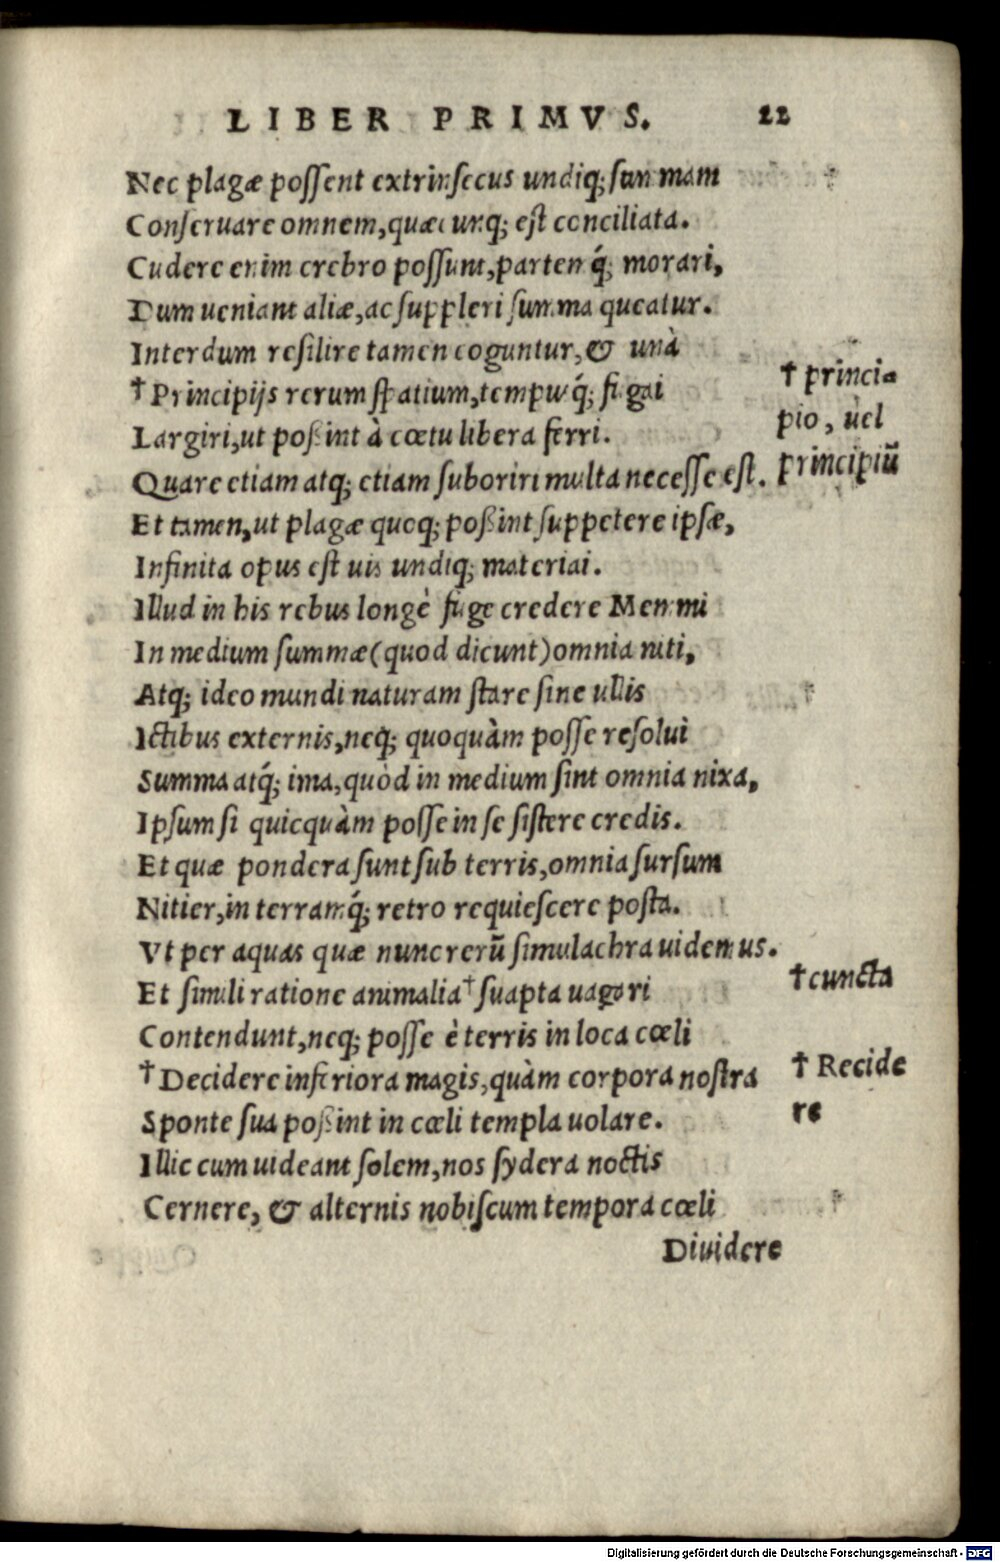 LIBER PRIMVS. 22
Nec plagæ poſſent extrinſecus undiq; ſummam
Conſeruare omnem,quæcunq; eſt conciliata.
Cudere enim crebro poſſunt,partemq́; morari,
Dum ueniant aliæ,ac ſuppleri ſumma queatur.
Interdum reſilire tamen coguntur,& unà
†Principijs rerum ſpatium,tempusq́; fugai
Largiri,ut poßint à cœtu libera ferri.
Quare etiam atq; etiam ſuboriri multa neceſſe eſt.
Et tamen,ut plagæ quoq; poßint ſuppetere ipſæ,
Infinita opus eſt uis undiq; materiai.
Illud in his rebus longè fuge credere Memmi
In medium ſummæ(quod dicunt)omnia niti,
Atq; ideo mundi naturam ſtare ſine ullis
Ictibus externis,neq; quoquàm poſſe reſolui
Summa atq́; ima,quòd in medium ſint omnia nixa,
Ipſum ſi quicquàm poſſe in ſe ſiſtere credis.
Et quæ pondera ſunt ſub terris,omnia ſurſum
Nitier,in terramq́; retro requieſcere poſta.
Vt per aquas quæ nunc rerū ſimulachra uidemus.
Et ſimili ratione animalia†ſuapta uagari
Contendunt,neq; poſſe è terris in loca cœli
†Decidere inferiora magis,quàm corpora noſtra
Sponte ſua poßint in cœli templa uolare.
Illic cum uideant ſolem,nos ſydera noctis
Cernere, & alternis nobiſcum tempora cœli
Diuidere
† princi-
pio, uel
principiū
†cuncta
† Recide
re
Digitalisierung gefördert durch die Deutsche Forschungsgemeinschaft - DFG